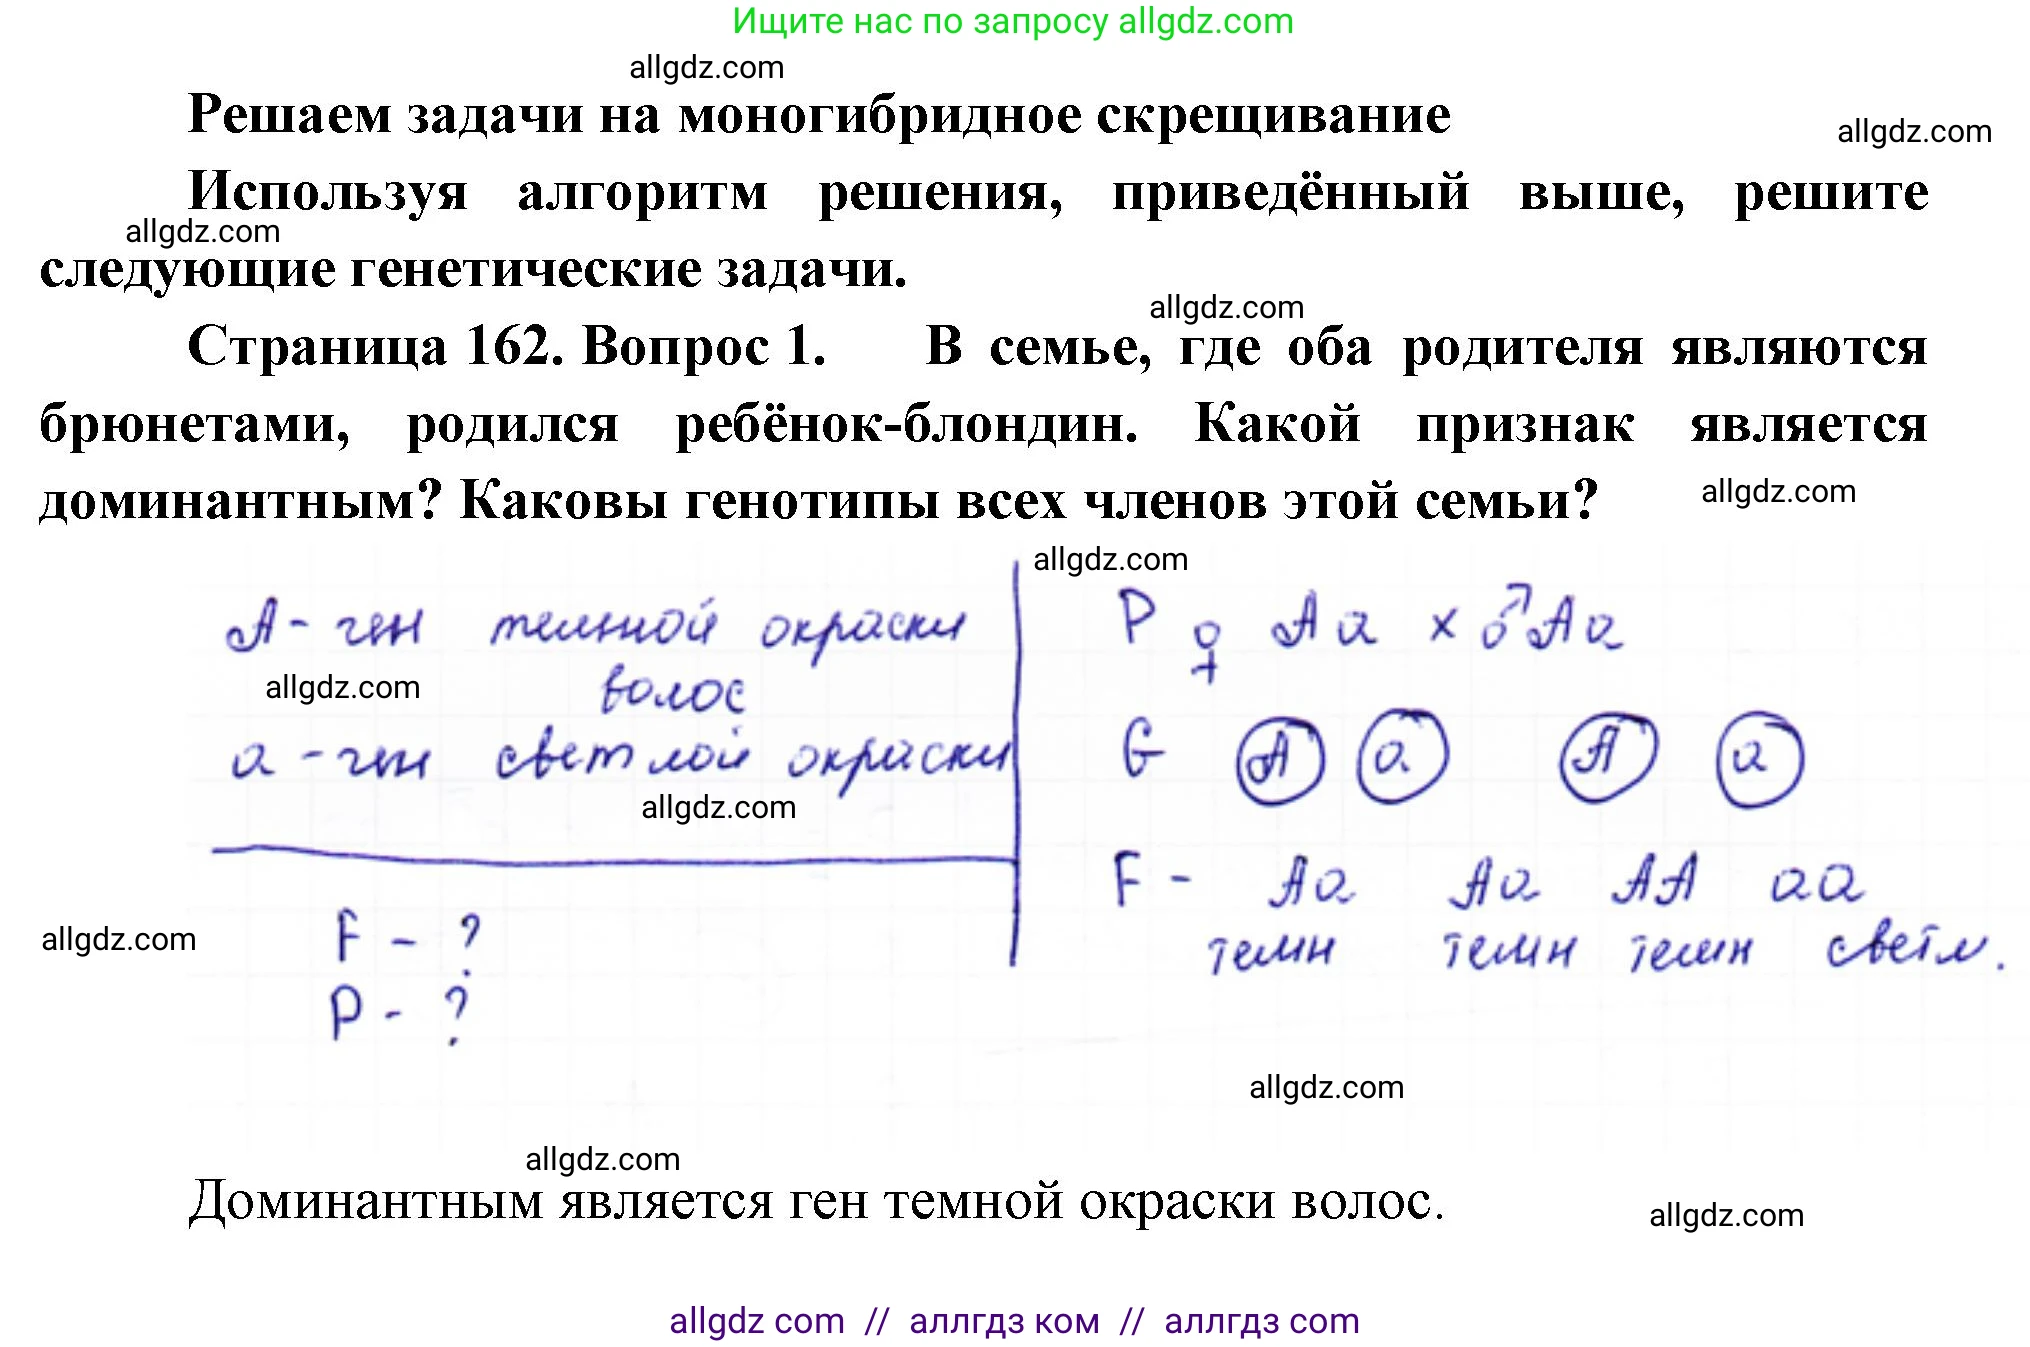 Ищите нас по запросу allgdz.com
allgdz.com
Решаем задачи на моногибридное скрещивание
allgdz.com
Используя алгоритм решения, приведённый выше, решите
allgdz.com
следующие генетические задачи.
allgdz.com
Страница 162. Вопрос 1. В семье, где оба родителя являются
брюнетами, родился ребёнок-блондин. Какой признак является
доминантным? Каковы генотипы всех членов этой семьи?
allgdz.com
allgdz.com
А - ген темной окраски
волос
allgdz.com
а - ген светлой окраски
allgdz.com
F - ?
P - ?
allgdz.com
P ♀ Аа х ♂ Аа
G А а А а
F - Аа Аа АА аа
темн темн темн светл.
allgdz.com
allgdz.com
Доминантным является ген темной окраски волос.
allgdz.com
allgdz com // аллгдз ком // аллгдз com